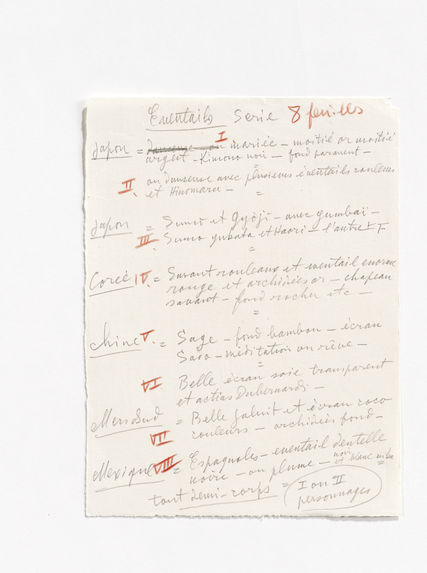 Eventails Serie 8 feuilles
I
Japon = Danseuse ou mariée – moitié or moitié
argent – Kimono noir – fond paravent –
II. ou danseuse avec plusieurs éventails couleurs
et Hinomaru –
=
Japon = Sumo et Gyōji – avec gumbaï –
III. Sumo yukata et Haori – l'autre
=
Corée IV. = Savant rouleaux et éventail énorme
rouge et archinées or – chapeau
savant – fond rocher etc –
=
Chine V. = Sage – fond bambou – écran
Saro – méditation ou rêve –
=
VI Belle écran soie transparent
et actias Dubernardi –
Mers Sud = Belle et écran coco
VII couleurs – archinées fond –
Mexique VIII = Espagnoles – éventail dentelle
noire – ou plume – noir et blanc
tout demi-corps = I ou II
personnages